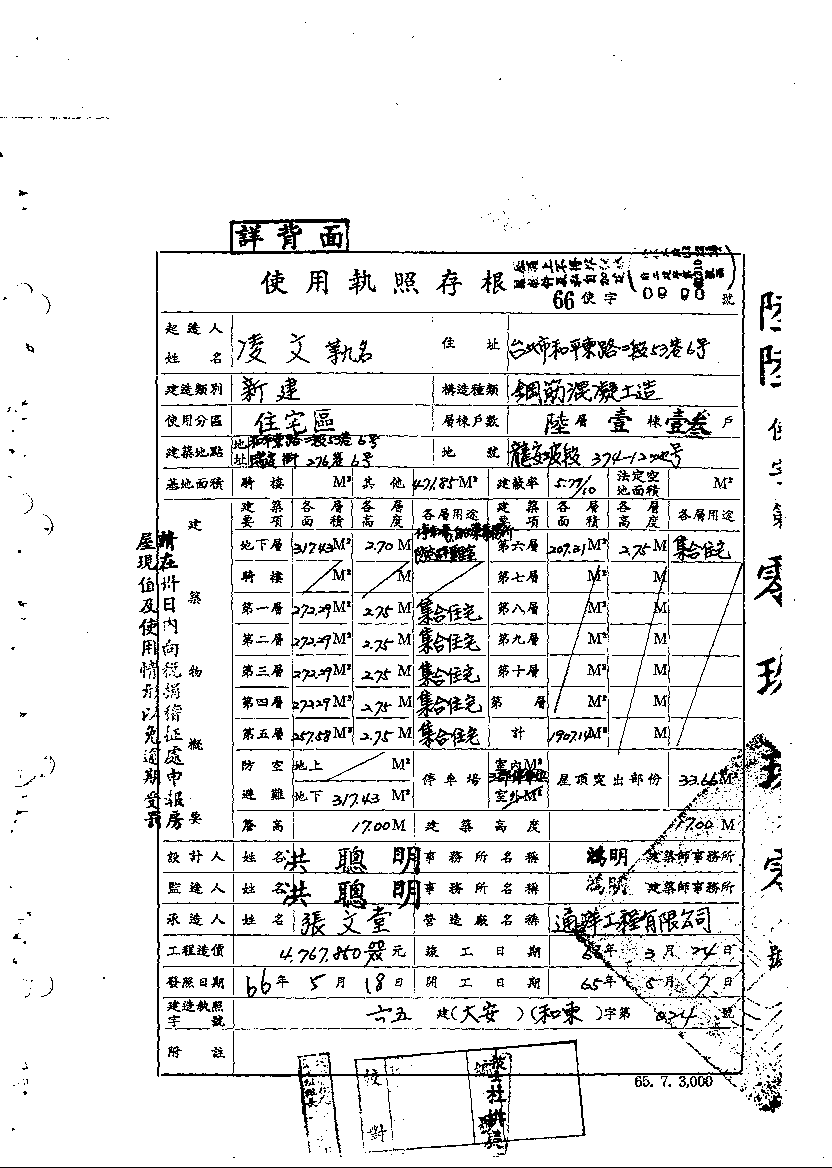 詳背面
使用執照存根
66 使字 0990 號
起造人姓名 凌文 等九名 住址 台北市和平東路二段53巷6號
建造類別 新建 構造種類 鋼筋混凝土造
使用分區 住宅區 層棟戶數 陸層 壹棟 壹叁戶
建築地點 地址 和平東路二段53巷6號 276巷6號 地號 龍安坡段 374-12
基地面積 騎樓 M² 其他 471.85M² 建蔽率 5.77/10 法定空地面積 M²
建築物概要
建築要項 各層面積 各層高度 各層用途 建築要項 各層面積 各層高度 各層用途
地下層 317.43M² 2.70M 第六層 207.21M² 2.75M 集合住宅
騎樓 M² M 第七層 M² M
第一層 272.29M² 2.75M 集合住宅 第八層 M² M
第二層 272.29M² 2.75M 集合住宅 第九層 M² M
第三層 272.29M² 2.75M 集合住宅 第十層 M² M
第四層 272.29M² 2.75M 集合住宅 第 層 M² M
第五層 257.58M² 2.75M 集合住宅 計 1907.14M² M
防空避難 地上 M² 停車場 室內M² 室外M² 屋頂突出部份 33.66M²
地下 317.43
簷高 17.00M 建築高度 17.00M
設計人 姓名 洪聰明 事務所名稱 鴻明 建築師事務所
監造人 姓名 洪聰明 事務所名稱 鴻明 建築師事務所
承造人 姓名 張文堂 營造廠名稱 工程有限公司
工程造價 4,767,850元 竣工日期 66年3月24日
發照日期 66年5月18日 開工日期 65年5月7日
建造執照字號 六五 建(大安)(和東)字第 024 號
附註
校對
65. 7. 3,000
請在卅日內向稅捐稽征處申報房
屋現值及使用情形以免逾期受罰
陸陸使字第零玖玖零號